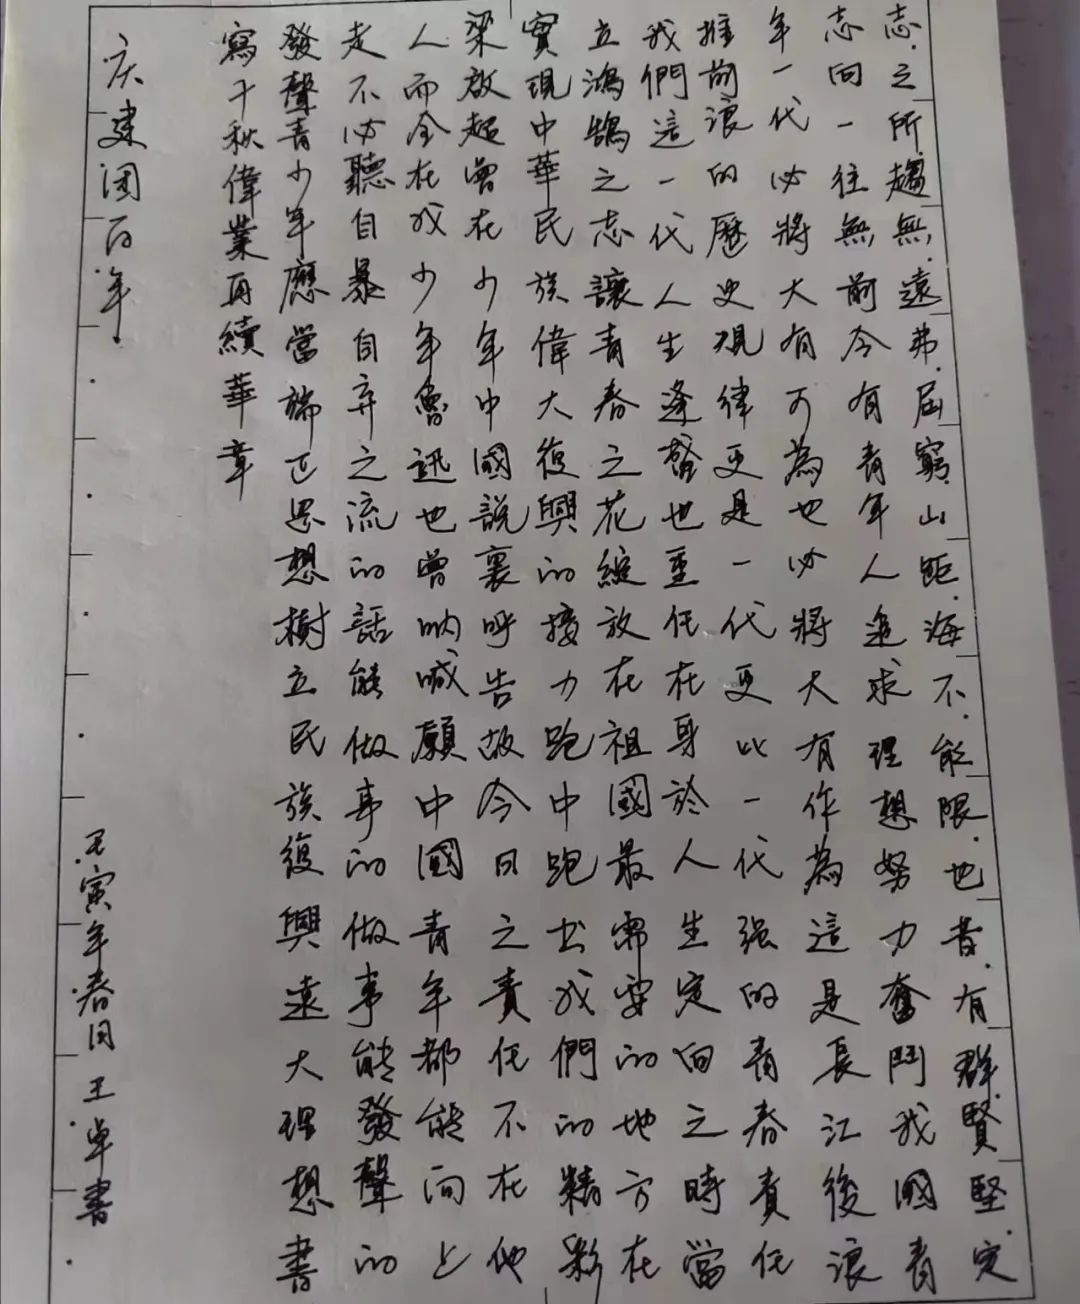 志之所趨無遠弗屆窮山距海不能限也昔有群賢堅定
志向一往無前今有青年人追求理想努力奮鬥我國青
年一代必將大有可為也必將大有作為這是長江後浪
推前浪的歷史規律更是一代更比一代强的青春責任
我們這一代人生逢盛世重任在身於人生定向之時當
立鴻鵠之志讓青春之花綻放在祖國最需要的地方在
實現中華民族偉大復興的接力跑中跑出我們的精彩
梁啟超曾在少年中國說裏呼告故今日之責任不在他
人而全在我少年魯迅也曾吶喊願中國青年都能向上
走不必聽自暴自弃之流的話能做事的做事能發聲的
發聲青少年應當端正思想樹立民族復興遠大理想書
寫千秋偉業再續華章
庆建团百年
壬寅年春月王卓書